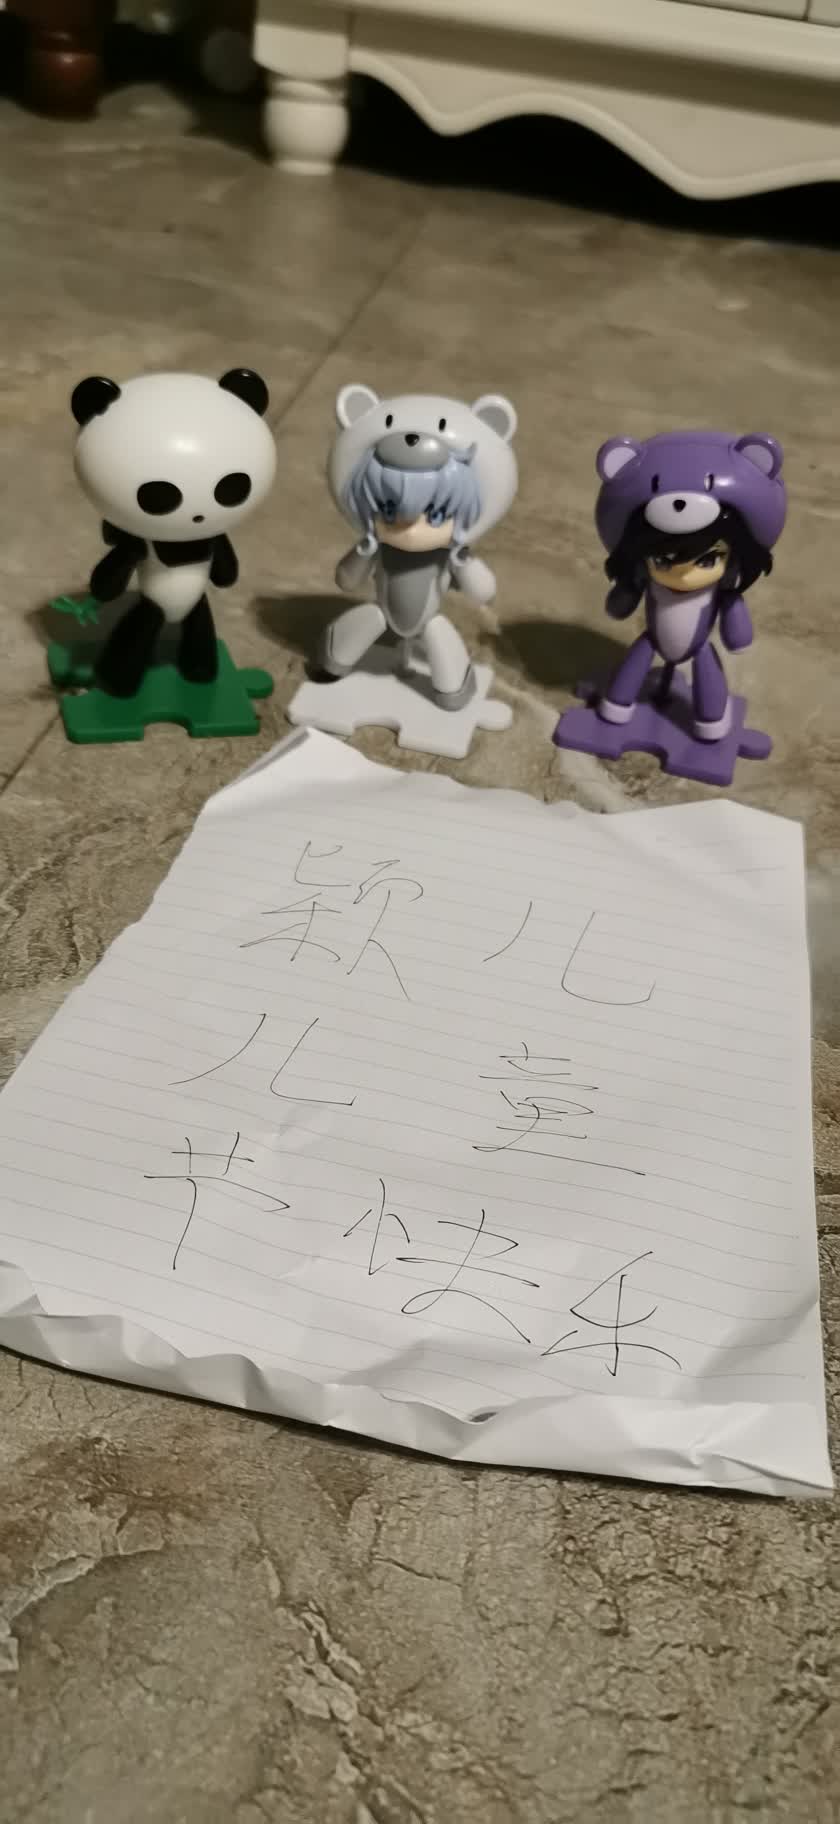 颖儿
儿童
节快乐